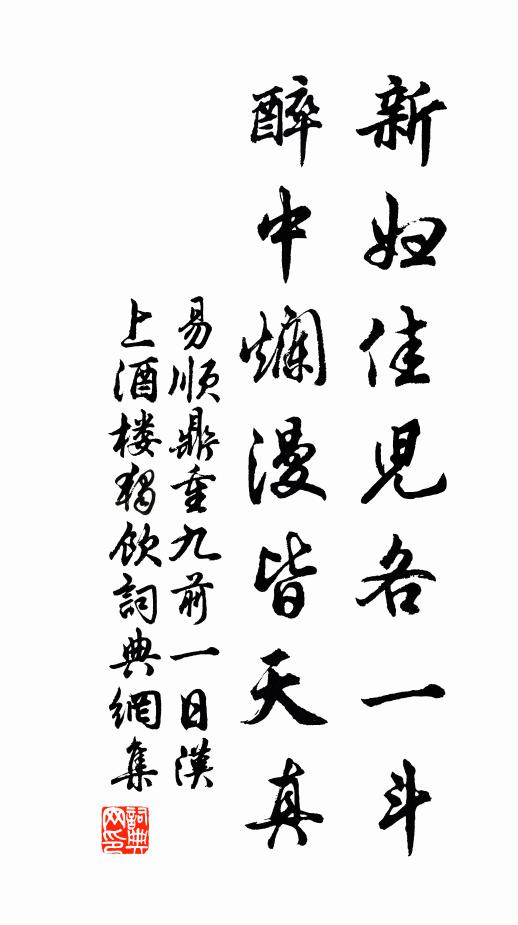 新妇佳児各一斗
醉中爛漫皆天真
易顺鼎重九前一日漢
上酒楼独饮詞典網集
詞典
网印